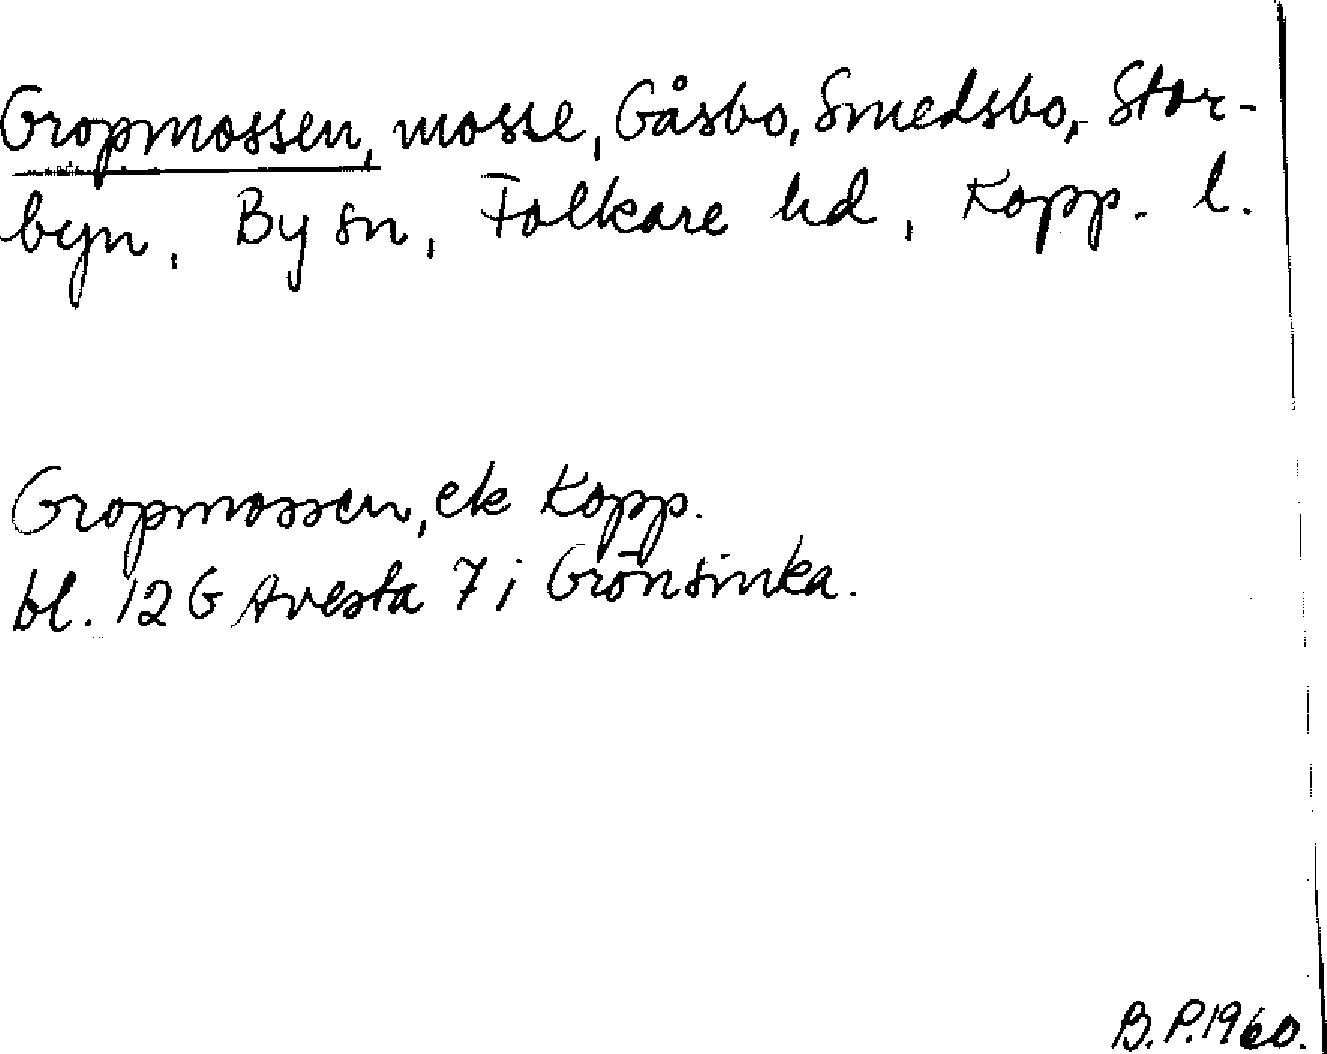 Gropmossen, mosse, Gåsbo, Smedsbo, Stor-
byn, By sn, Folkare hd, Kopp. l.
Gropmossen, ek Kopp.
bl. 12 G Avesta 7 i Grönsinka.
B.P. 1960.